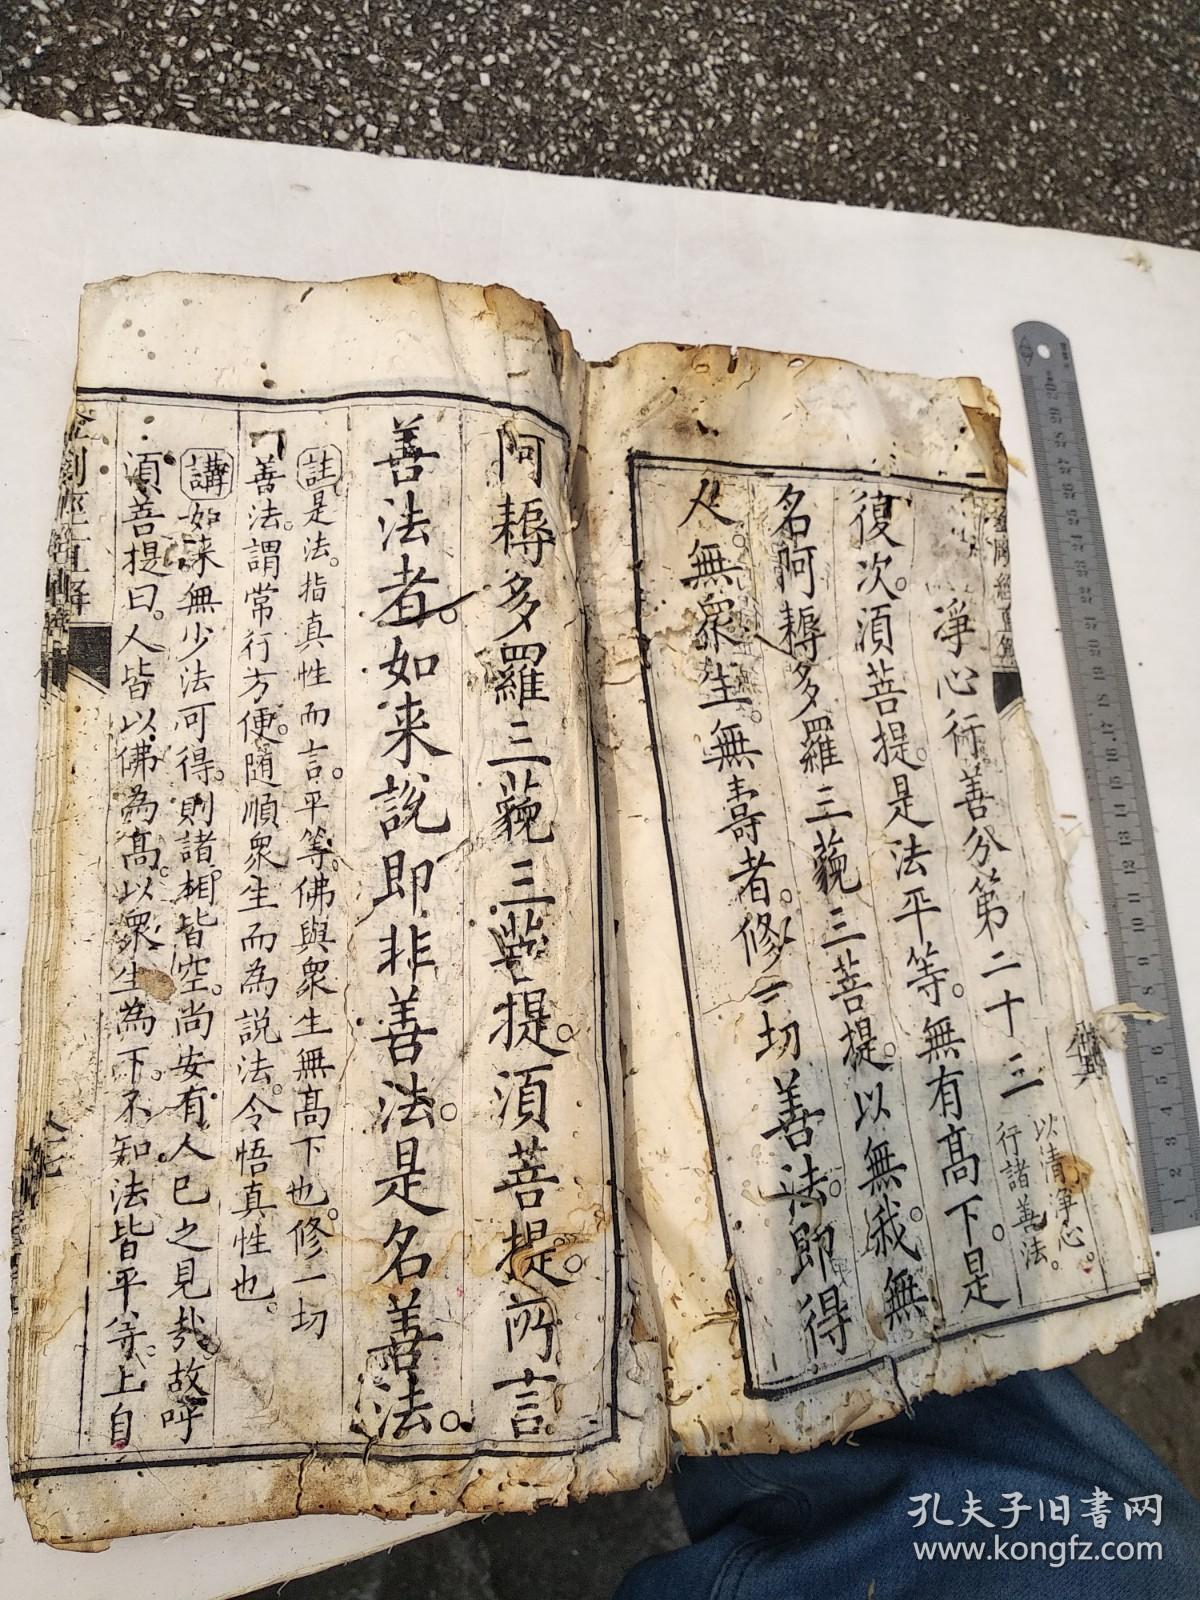 淨心行善分第二十三
以清淨心。
行諸善法。
復次。須菩提。是法平等。無有高下。是
名阿耨多羅三藐三菩提。以無我。無
人無眾生。無壽者。修一切善法。即得
阿耨多羅三藐三菩提。須菩提。所言
善法者。如来說即非善法。是名善法。
註是法。指真性而言。平等。佛與眾生無高下也。修一切
善法。謂常行方便。隨順眾生而為說法。令悟真性也。
講如来無少法可得。則諸相皆空。尚安有人已之見哉。故呼
須菩提曰。人皆以佛為高。以眾生為下。不知法皆平等。上自
金剛經直解
孔夫子旧書网
www.kongfz.com